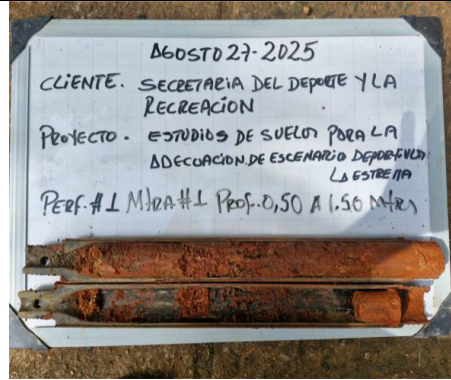 AGOSTO 27-2025
CLIENTE. SECRETARIA DEL DEPORTE Y LA
RECREACIÓN
PROYECTO. ESTUDIOS DE SUELOS PARA LA
ADECUACION DE ESCENARIO DEPORTIVO
LA ESTRELLA
PERF. #1 MTRA #1 PROF. 0,50 A 1.50 MTRS